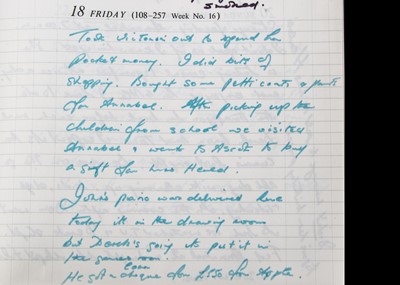 smoked.
18 FRIDAY (108–257 Week No. 16)
Took Victoria out to spend her
pocket money. I did a bit of
shopping. Bought some petticoats & pants
for Annabel. After picking up the
children from school we visited
Annabel & went to Ascot to buy
a gift for
John's piano was delivered here
today it's in the drawing room
but Derek's going to put it in
the games room.
He got a loan cheque for £150 for Apple.